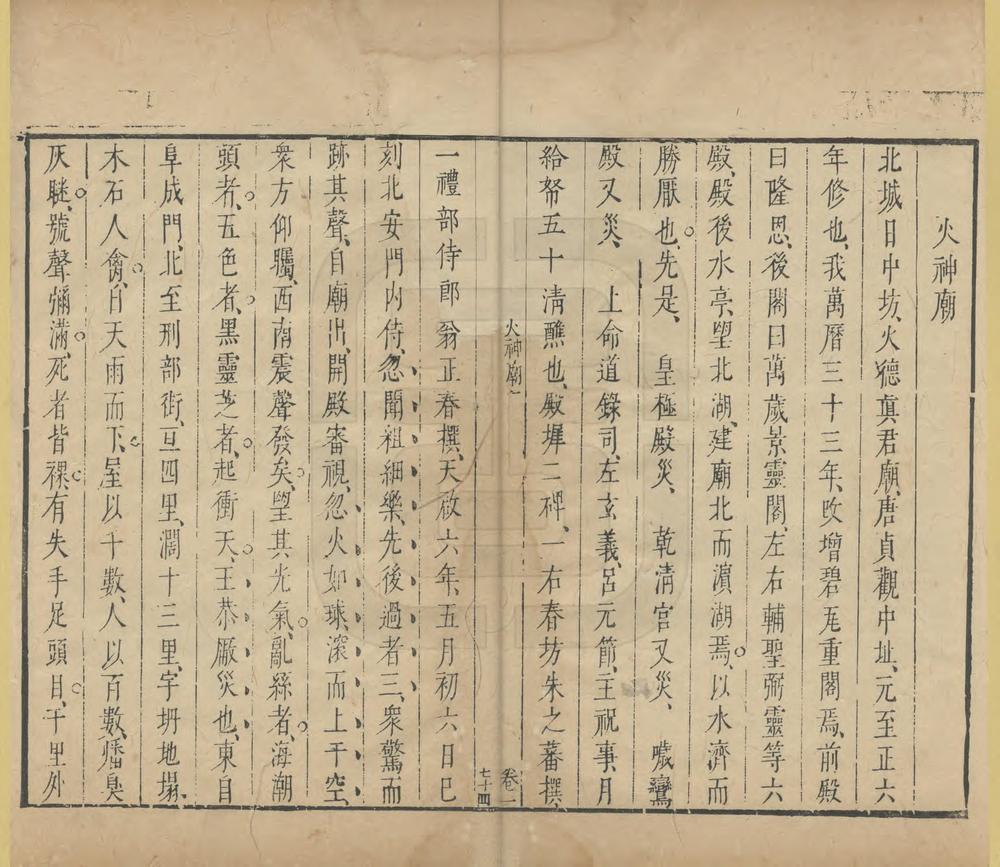 火神廟
北城日中坊、火德眞君廟、唐貞觀中址、元至正六
年修也、我萬曆三十三年、改增碧瓦重閣焉、前殿
曰隆恩、後閣曰萬歲景靈閣、左右輔聖弼靈等六
殿、殿後水亭、望北湖、建廟北而濵湖焉。以水濟而
勝厭也。先是、皇極殿災、乾清宮又災、噦鸞
殿又災、上命道錄司、左玄義、呂元節、主祝事、月
給帑五十清醮也、殿墀二碑、一右春坊朱之蕃撰、
火神廟一
卷一
七十四
一禮部侍郎翁正春撰、天啟六年、五月初六日巳
刻、北安門內侍、忽聞粗細樂、先後過者三、衆驚而
跡其聲、自廟出、開殿審視、忽火如球、滚而上于空、
衆方仰矚、西南震聲發矣。望其光氣。亂絲者。海潮
頭者。五色者。黑靈芝者。起衝天。王恭廠災也、東自
阜成門、北至刑部街、亙四里、濶十三里、宇坍地塌、
木石人禽。自天雨而下。屋以千數、人以百數、燔臭
灰瞇。號聲彌滿。死者皆裸。有失手足頭目。千里外